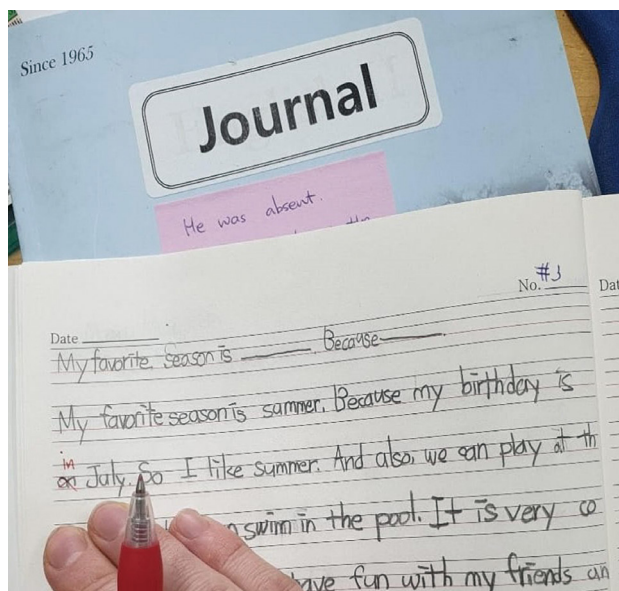 Since 1965
Journal
He was absent.
No. #3
Date
My favorite season is ______. Because ______.
My favorite season is sammer. Because my birthday is
in on July. So I like summer. And also, we can play at th
swim in the pool. It is very co
have fun with my friends an